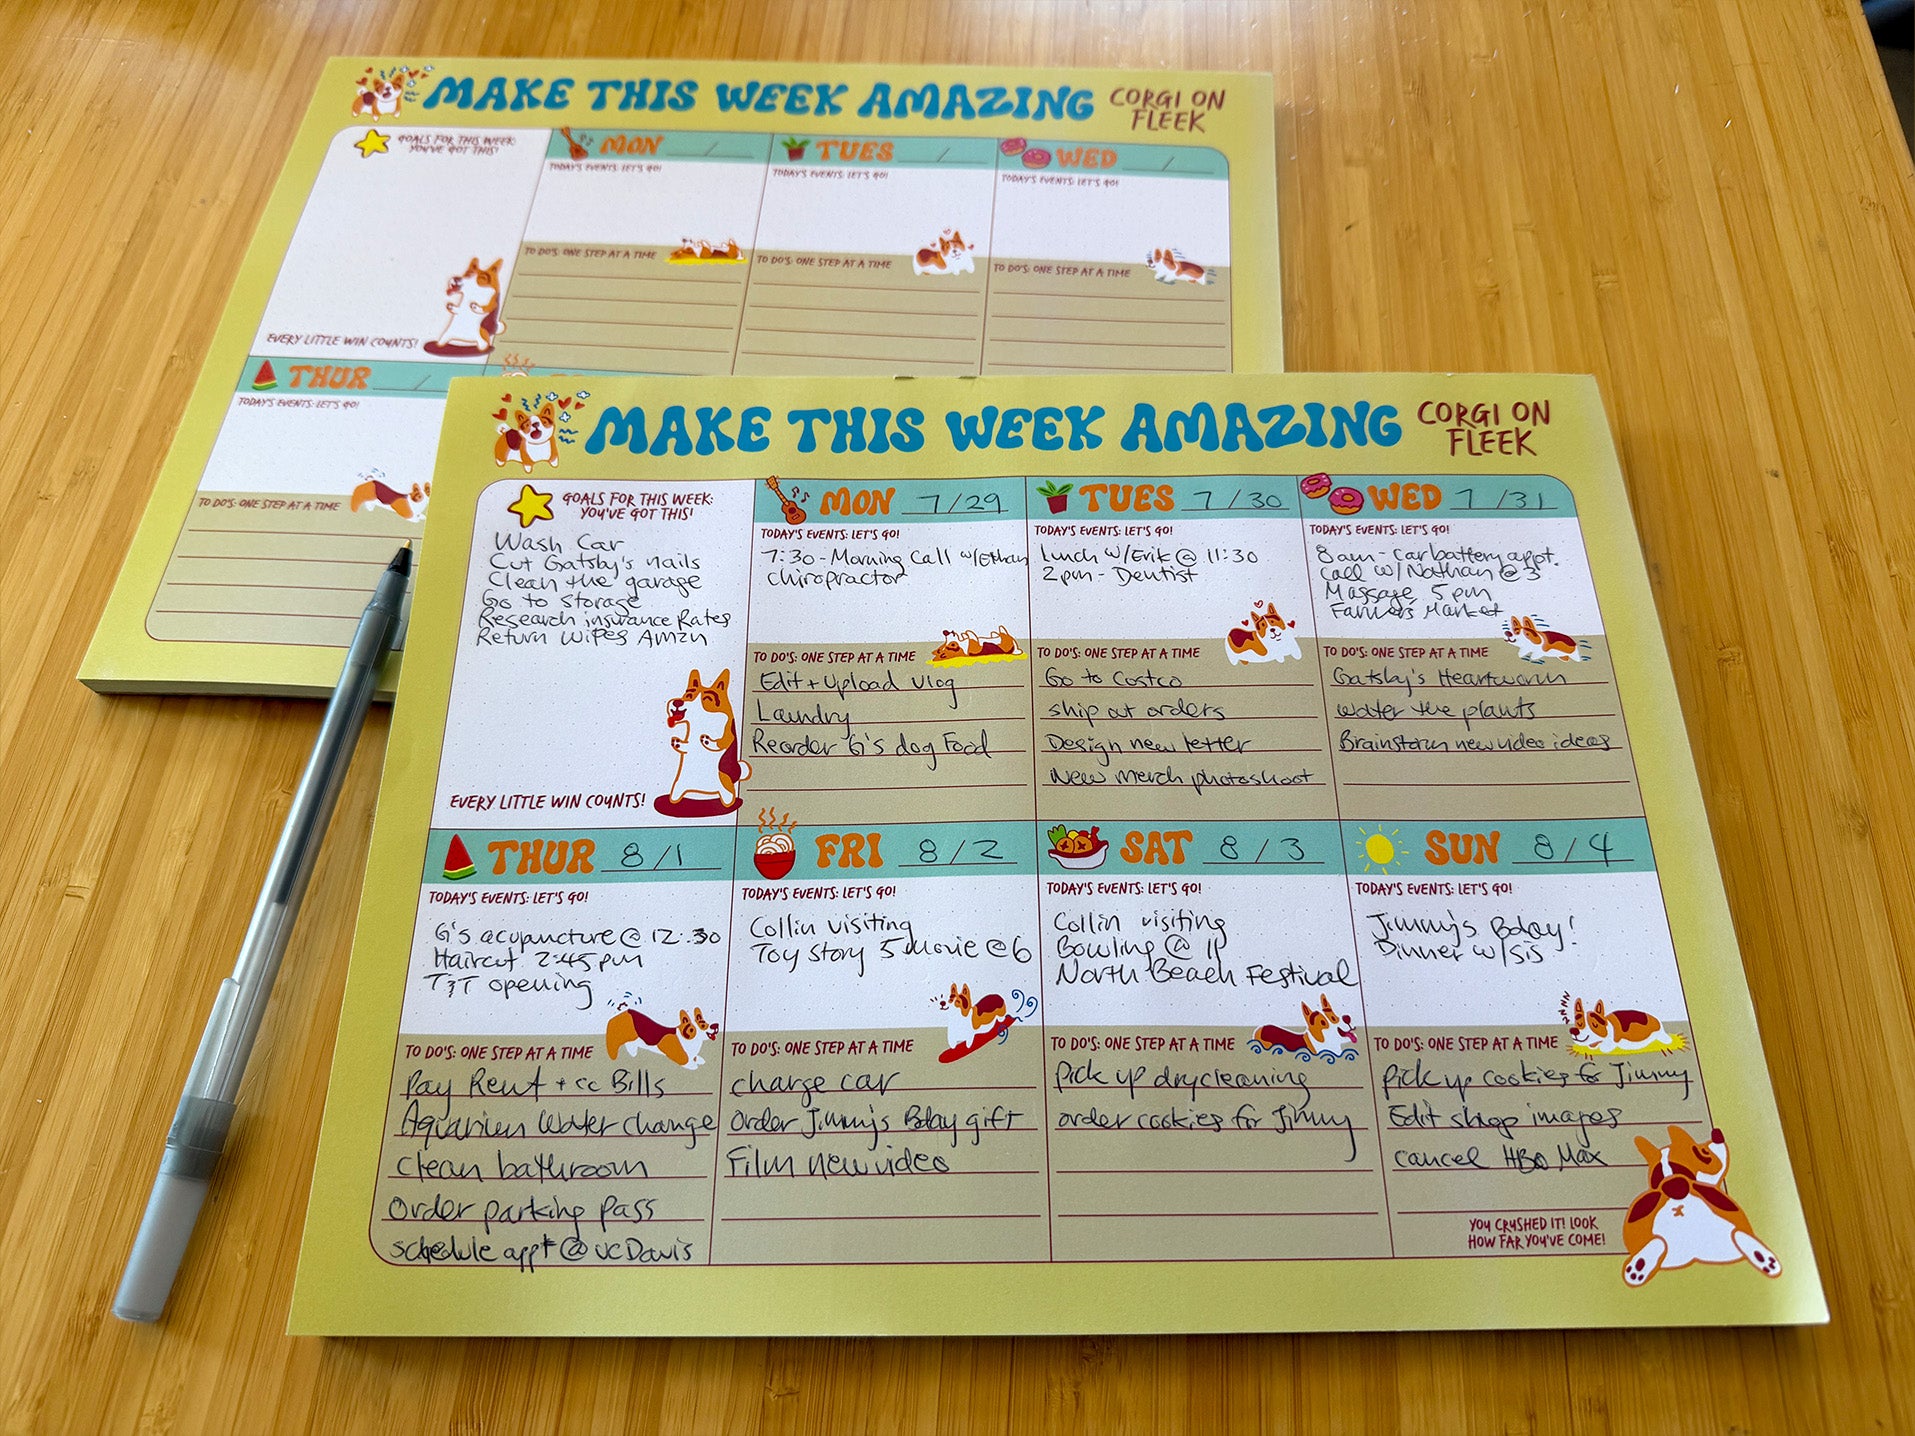 MAKE THIS WEEK AMAZING
CORGI ON
FLEEK
GOALS FOR THIS WEEK:
YOU'VE GOT THIS!
EVERY LITTLE WIN COUNTS!
MON /
TODAY'S EVENTS: LET'S GO!
TO DO'S: ONE STEP AT A TIME
TUES /
TODAY'S EVENTS: LET'S GO!
TO DO'S: ONE STEP AT A TIME
WED /
TODAY'S EVENTS: LET'S GO!
TO DO'S: ONE STEP AT A TIME
THUR /
TODAY'S EVENTS: LET'S GO!
TO DO'S: ONE STEP AT A TIME
MAKE THIS WEEK AMAZING
CORGI ON
FLEEK
GOALS FOR THIS WEEK:
YOU'VE GOT THIS!
Wash Car
Cut Gatsby's nails
Clean the garage
Go to storage
Research insurance Rates
Return Wipes Amzn
EVERY LITTLE WIN COUNTS!
MON 7/29
TODAY'S EVENTS: LET'S GO!
7:30-Morning Call w/Ethan
chiropractor
TO DO'S: ONE STEP AT A TIME
Edit + Upload Vlog
Laundry
Reorder G's dog Food
TUES 7/30
TODAY'S EVENTS: LET'S GO!
Lunch w/Erik @ 11:30
2pm - Dentist
TO DO'S: ONE STEP AT A TIME
Go to Costco
ship out orders
Design new letter
New merch photoshoot
WED 7/31
TODAY'S EVENTS: LET'S GO!
8am - Car battery appt.
Call w/Nathan @ 3
Massage 5pm
Farmers Market
TO DO'S: ONE STEP AT A TIME
Gatsby's Heartworm
water the plants
Brainstorm new video ideas
THUR 8/1
TODAY'S EVENTS: LET'S GO!
G's acupuncture @ 12:30
Haircut 2:45pm
T&T opening
TO DO'S: ONE STEP AT A TIME
Pay Rent + cc Bills
Aquarium Water change
clean bathroom
Order parking pass
schedule appt @ UC Davis
FRI 8/2
TODAY'S EVENTS: LET'S GO!
Collin visiting
Toy Story 5 Movie @ 6
TO DO'S: ONE STEP AT A TIME
charge car
Order Jimmy's Bday gift
Film new video
SAT 8/3
TODAY'S EVENTS: LET'S GO!
Collin visiting
Bowling @ 11
North Beach Festival
TO DO'S: ONE STEP AT A TIME
Pick up drycleaning
order cookies for Jimmy
SUN 8/4
TODAY'S EVENTS: LET'S GO!
Jimmy's Bday!
Dinner w/sis
TO DO'S: ONE STEP AT A TIME
pick up cookies for Jimmy
Edit shop images
cancel HBO Max
YOU CRUSHED IT! LOOK
HOW FAR YOU'VE COME!